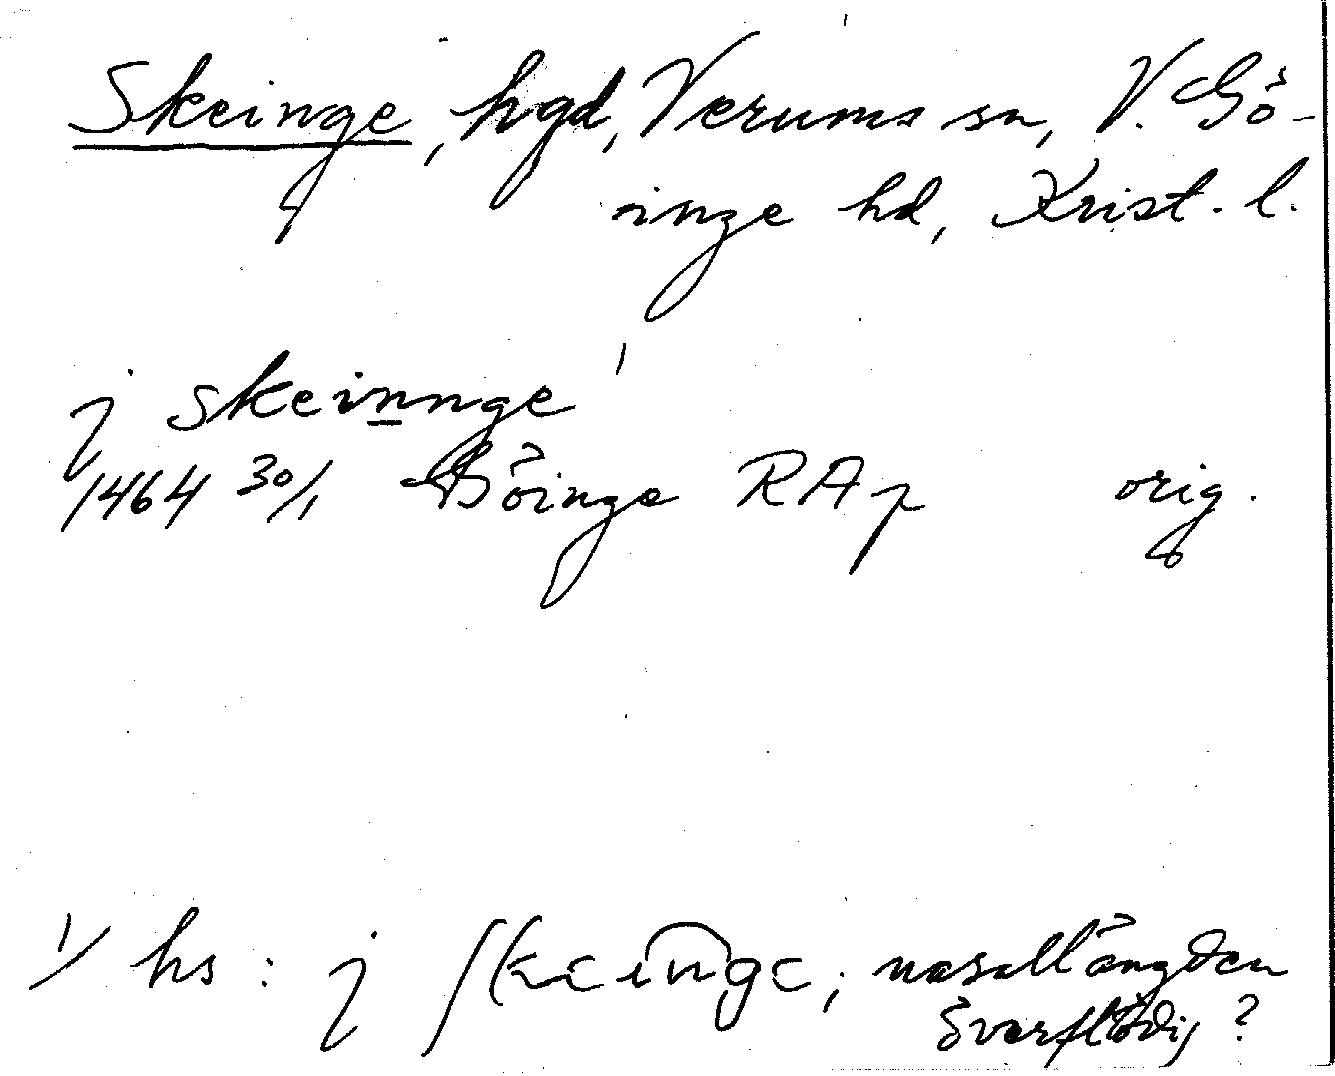 Skeinge, hgd, Verums sn, V. Gö-
inge hd, Krist. l.
j skeinnge ¹
1464 30/1 Göinge RAp orig.
1/ hs: j skeinge; nasallängden
överflödig?